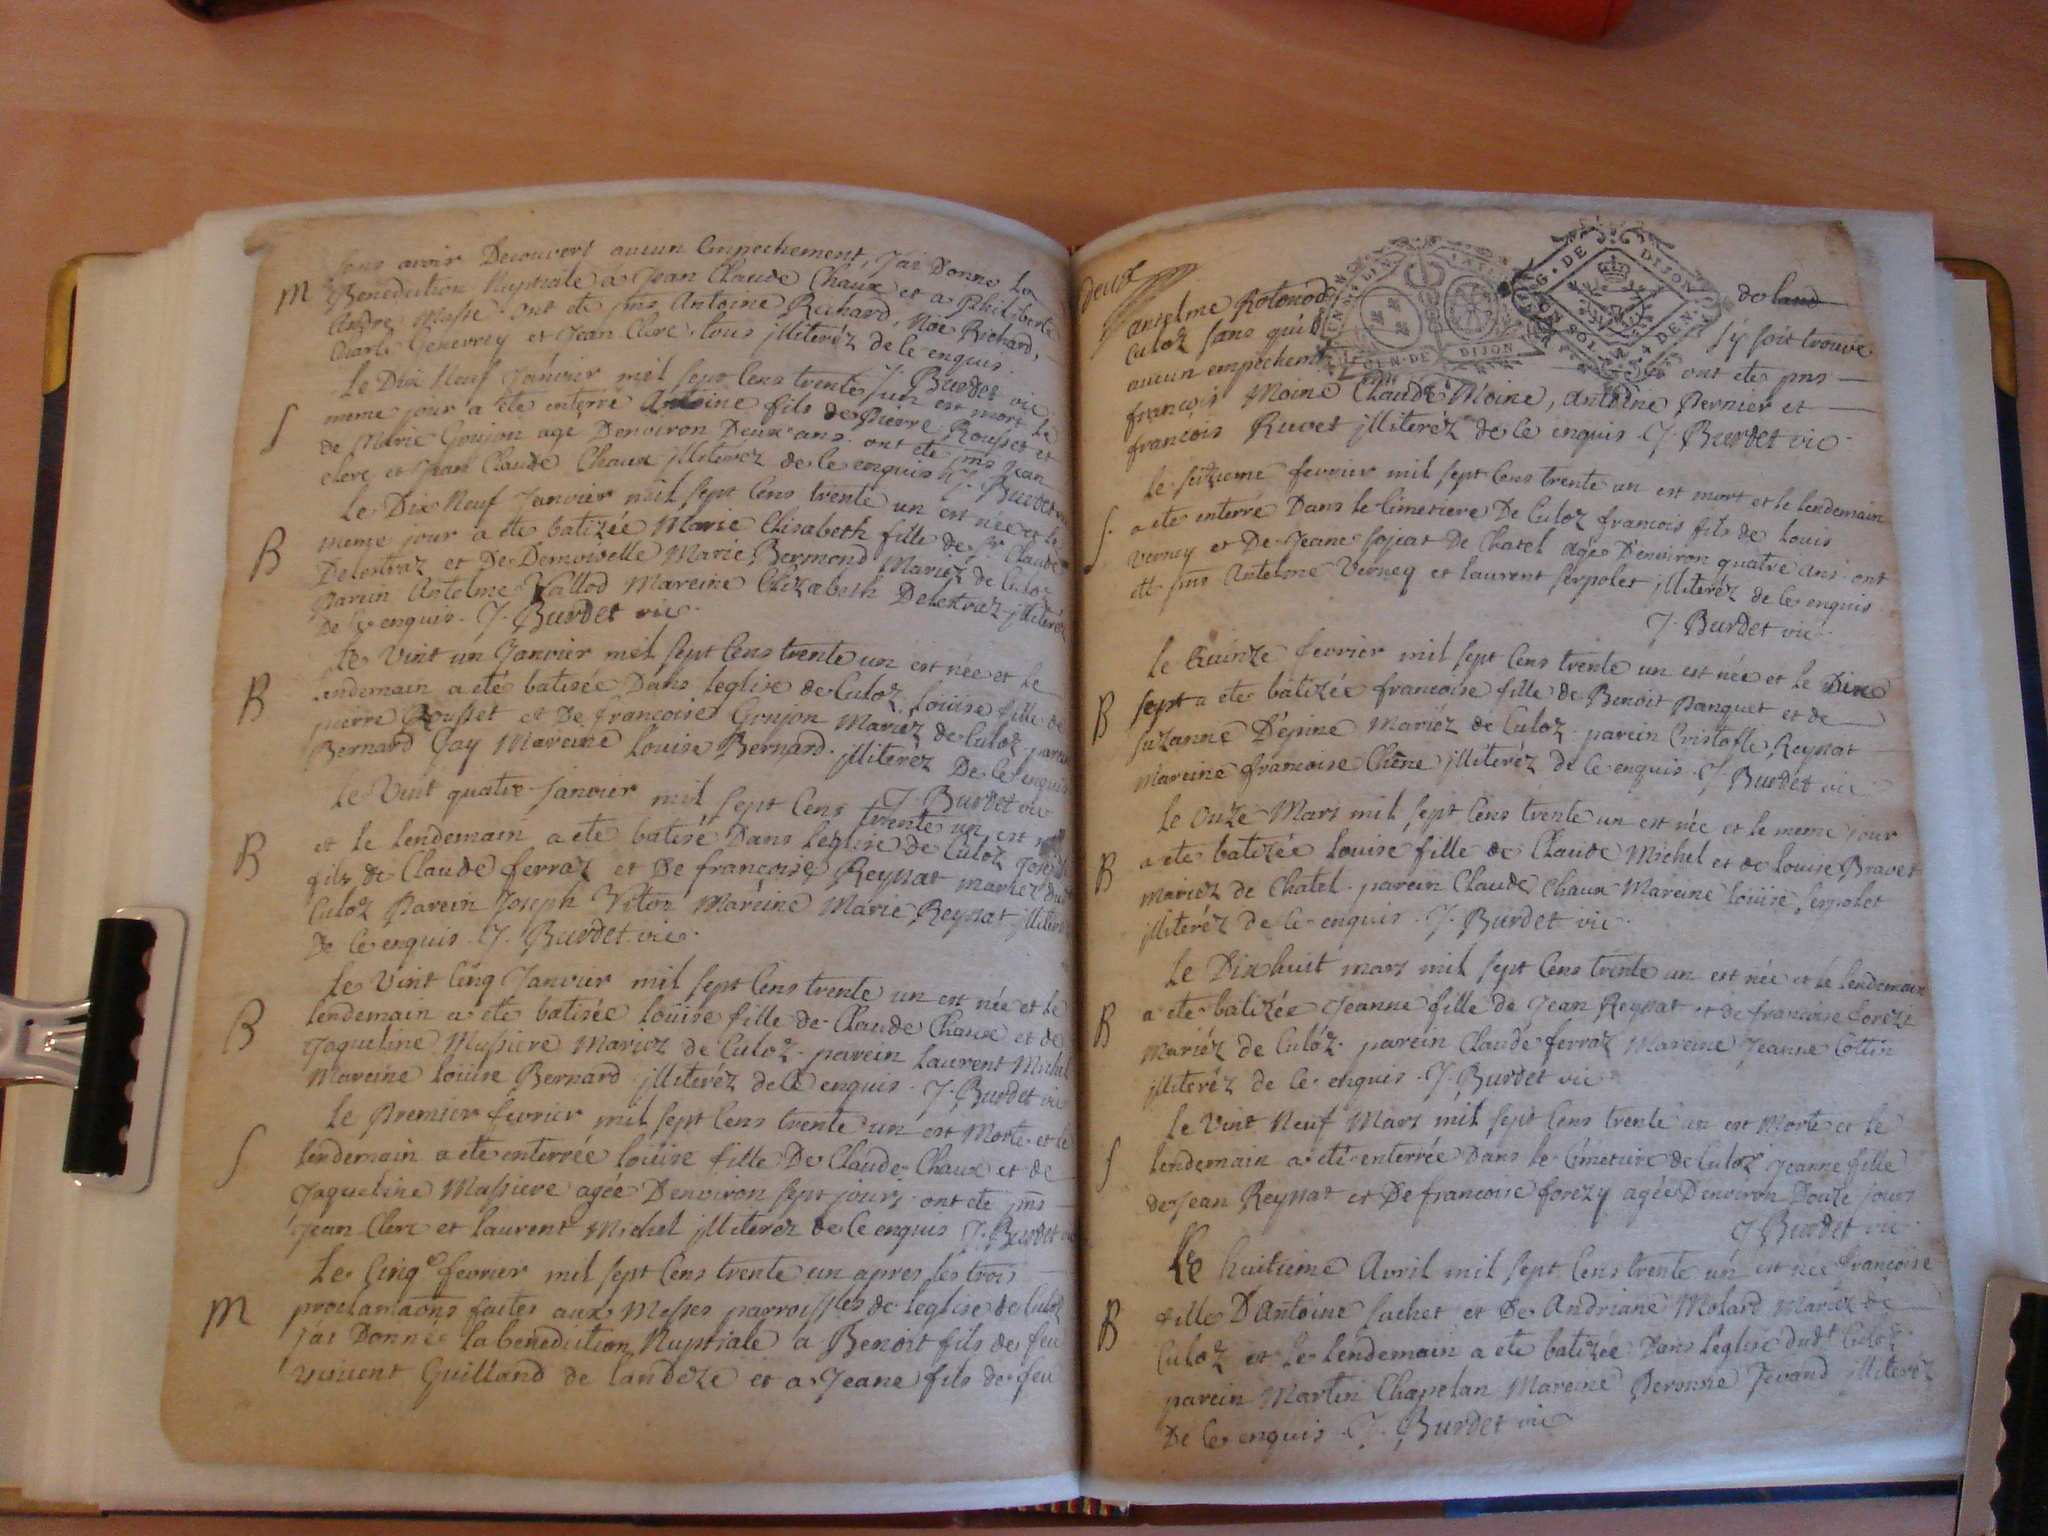 sans avoir Decouvert aucun Empechement, J'ai Donné la
M Benediction Nuptiale a Jean Claude Chaux et a Philiberte
André Musse ont eté pns Antoine Richard, Noe Richard,
Charle Jenevrey et Jean Clerc tous jlliteréz de ce enquis.
J. Burdet vic
Le Dix Neuf Janvier mil sept Cens trente un est mort le
S meme jour a ete enterré Antoine fils de Pierre Rousset et
de Marie Goujon agé Denviron Deux ans ont eté pns Jean
clerc et Jean Claude Chaux jlliterez de ce enquis J. Burdet
Le Dix Neuf Janvier mil sept Cens trente un est née et le
B meme jour a ete batizée Marie Elisabeth fille de Sr Claude
Delestraz et De Demoiselle Marie Bermond Mariez de Culoz
Parein Antelme Vallod Mareine Elizabeth Delestraz jlliteréz
De ce enquis. J. Burdet vic
Le Vint un Janvier mil sept Cens trente un est née et le
B lendemain a eté batisée Dans leglise de Culoz Loüise fille de
pierre Rousset et De françoise Goujon Mariez de Culoz parein
Bernard Jay Mareine Louise Bernard jlliteréz De ce enquis
J. Burdet vic
Le Vint quatre Janvier mil sept Cens trente un est né
B et le lendemain a ete batisé Dans leglise de Culoz Joseph
fils de Claude ferraz et De françoise Reynat mariez dud
Culoz Parein Joseph Mareine Marie Reynat jlliteréz
De ce enquis. J. Burdet vic
Le Vint Cinq Janvier mil sept Cens trente un est née et le
B lendemain a eté batisée loüise fille de Claude Chaux et de
Jaqueline Massiere Mariez de Culoz parein Laurent Michel
Mareine loüise Bernard jlliteréz de ce enquis. J. Burdet vic
Le Premier fevrier mil sept Cens trente un est Morte et le
S lendemain a ete enterrée loüise fille De Claude Chaux et de
Jaqueline Massiere agée Denviron sept jours ont eté pns
Jean Clerc et laurent Michel jlliteréz de ce enquis J. Burdet vic
Le Cinqe fevrier mil sept Cens trente un apres les trois
M proclamaons faites aux Messes parroissles de leglise de Culoz
j'ai Donné la benediction Nuptiale a Benoit fils de feu
vincent Guilland de landeze et a Jeane fils de feu
deux
antelme Rotonod de land
Culoz sans qu'il s'y soit trouvé
aucun empechemt ont ete pns
françois Moine Claude Moine, antoine Pernier et
françois Ruvet jlliteréz de ce enquis. J. Burdet vic
GEN DE DIJON
G. DE DIJON
Le seizieme fevrier mil sept Cens trente un est mort et le lendemain
S. a ete enterré Dans le Cimetiere De Culoz françois fils de Louis
Verney et De Jeane Sojiat De Chatel agé Denviron quatre ans ont
ete pns Antelme Verney et laurent Serpolet jlliteréz de ce enquis
J. Burdet vic
Le Quinze fevrier mil sept Cens trente un est née et le Dixe
B sept a ete batizée francoise fille de Benoit Panquet et de
Suzanne D'épine Mariéz de Culoz parein Cristofle Reynat
Mareine francoise Chêne jlliteréz de ce enquis. J. Burdet vic
Le Onze Mars mil sept Cens trente un est née et le meme jour
B a ete batizée loüise fille de Claude Michel et de louise Bravet
mariez de Chatel parein Claude Chaux Mareine loüise Serpolet
jlliteréz de ce enquis. J. Burdet vic.
Le Dix huit mars mil sept Cens trente un est née et le lendemain
B a ete batizée Jeanne fille de Jean Reynat et de francoise forezi
Mariéz de Culoz parein Claude ferraz Mareine Jeanne Cottin
jlliteréz de ce enquis. J. Burdet vic
Le Vint Neuf Mars mil sept Cens trente un est Morte et le
S lendemain a eté enterrée Dans le Cimetiere de Culoz Jeanne fille
de Jean Reynat et De francoise forezy agée Denviron Douze jours
J Burdet vic
Le huitieme Avril mil sept Cens trente un est née francoise
B fille D'Antoine Sachet et De Andriane Molard Mariez de
Culoz et le lendemain a ete batizée Dans leglise dudt Culoz
parein Martin Chapelan Mareine Peronne Jevand jlliteréz
De ce enquis. J. Burdet vic